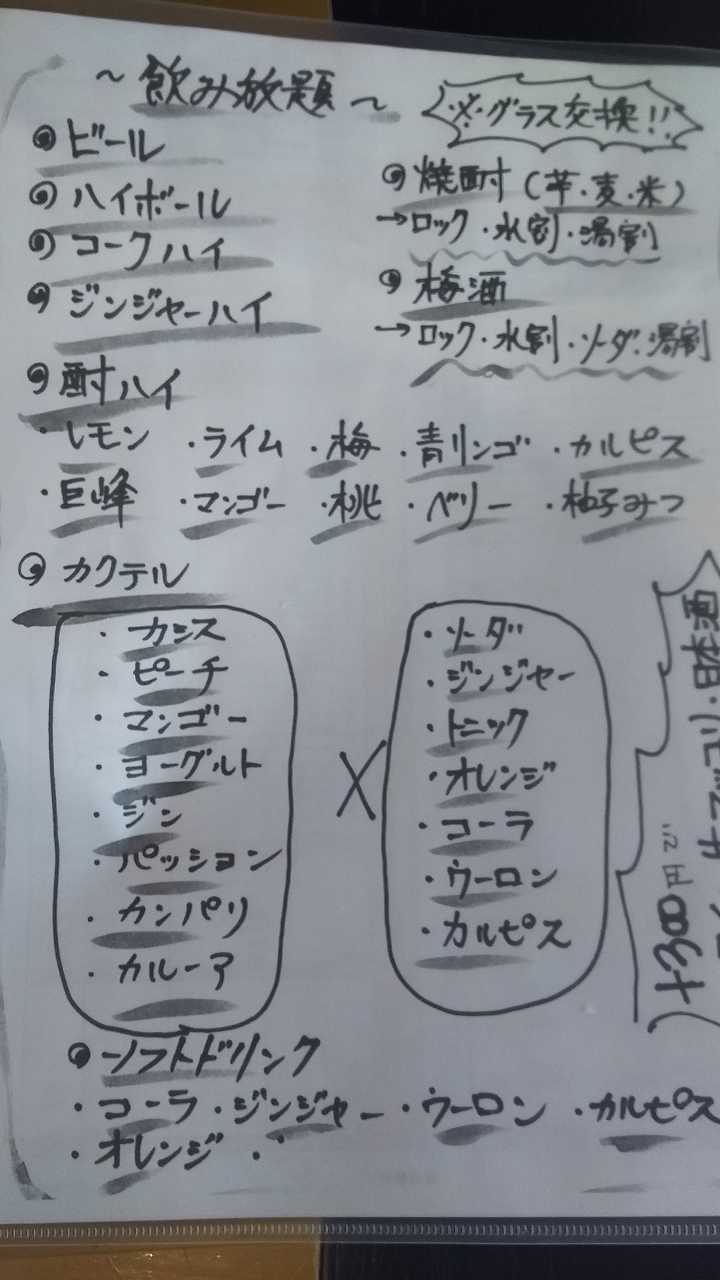 ～飲み放題～
※グラス交換!!
◎ビール
◎ハイボール
◎コークハイ
◎ジンジャーハイ
◎焼酎(芋・麦・米)
→ロック・水割・湯割
◎梅酒
→ロック・水割・ソーダ・湯割
◎酎ハイ
・レモン ・ライム ・梅 ・青リンゴ ・カルピス
・巨峰 ・マンゴー ・桃 ・ベリー ・柚子みつ
◎カクテル
・カシス
・ピーチ
・マンゴー
・ヨーグルト
・ジン
・パッション
・カンパリ
・カルーア
×
・ソーダ
・ジンジャー
・トニック
・オレンジ
・コーラ
・ウーロン
・カルピス
+300円で
◎ソフトドリンク
・コーラ ・ジンジャー ・ウーロン ・カルピス
・オレンジ